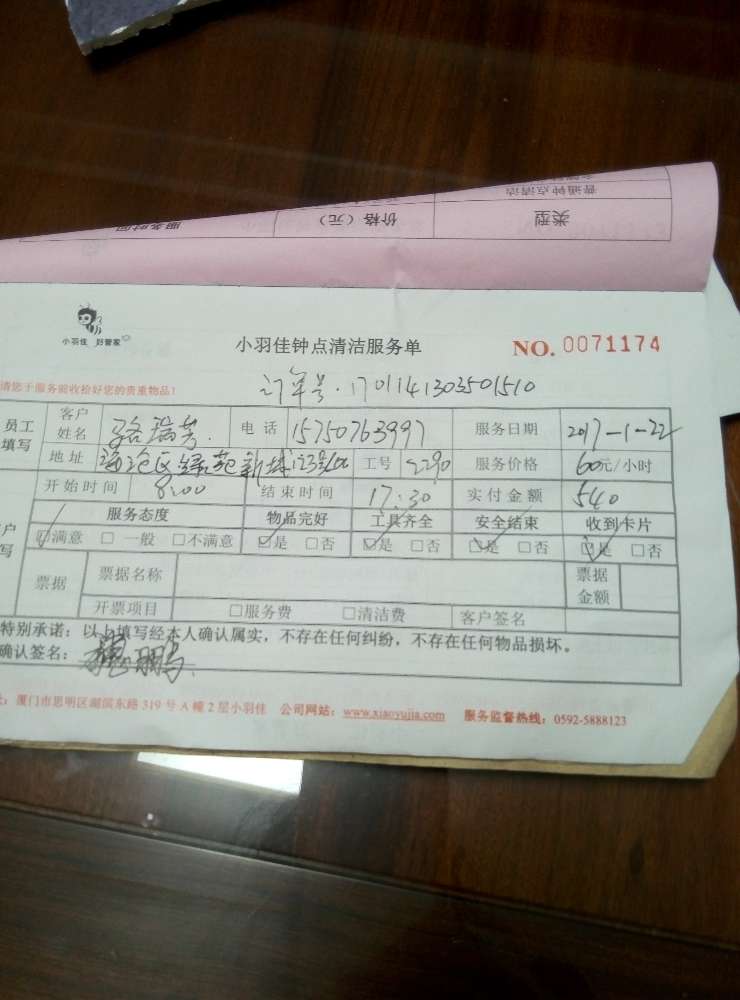 类型
价格（元）
服务时间
普通钟点清洁
小羽佳 好管家
小羽佳钟点清洁服务单
NO. 0071174
请您于服务前收拾好您的贵重物品！
订单号·1701141303501510
员工
填写
客户
姓名
骆瑞芳.
电 话
15750763997
服务日期
2017-1-22
地址
海沧区绿苑新城
工号
2290
服务价格
60元/小时
开始时间
8:00
结束时间
17:30
实付金额
540
户
写
服务态度
物品完好
工具齐全
安全结束
收到卡片
☑满意 □ 一般 □不满意
☑是 □否
☑是 □否
☑是 □否
☑是 □否
票据
票据名称
票据
金额
开票项目
□服务费
□清洁费
客户签名
特别承诺：以上填写经本人确认属实，不存在任何纠纷，不存在任何物品损坏。
确认签名：
：厦门市思明区湖滨东路 319 号 A 幢 2 层小羽佳 公司网站：www.xiaoyujia.com 服务监督热线：0592-5888123